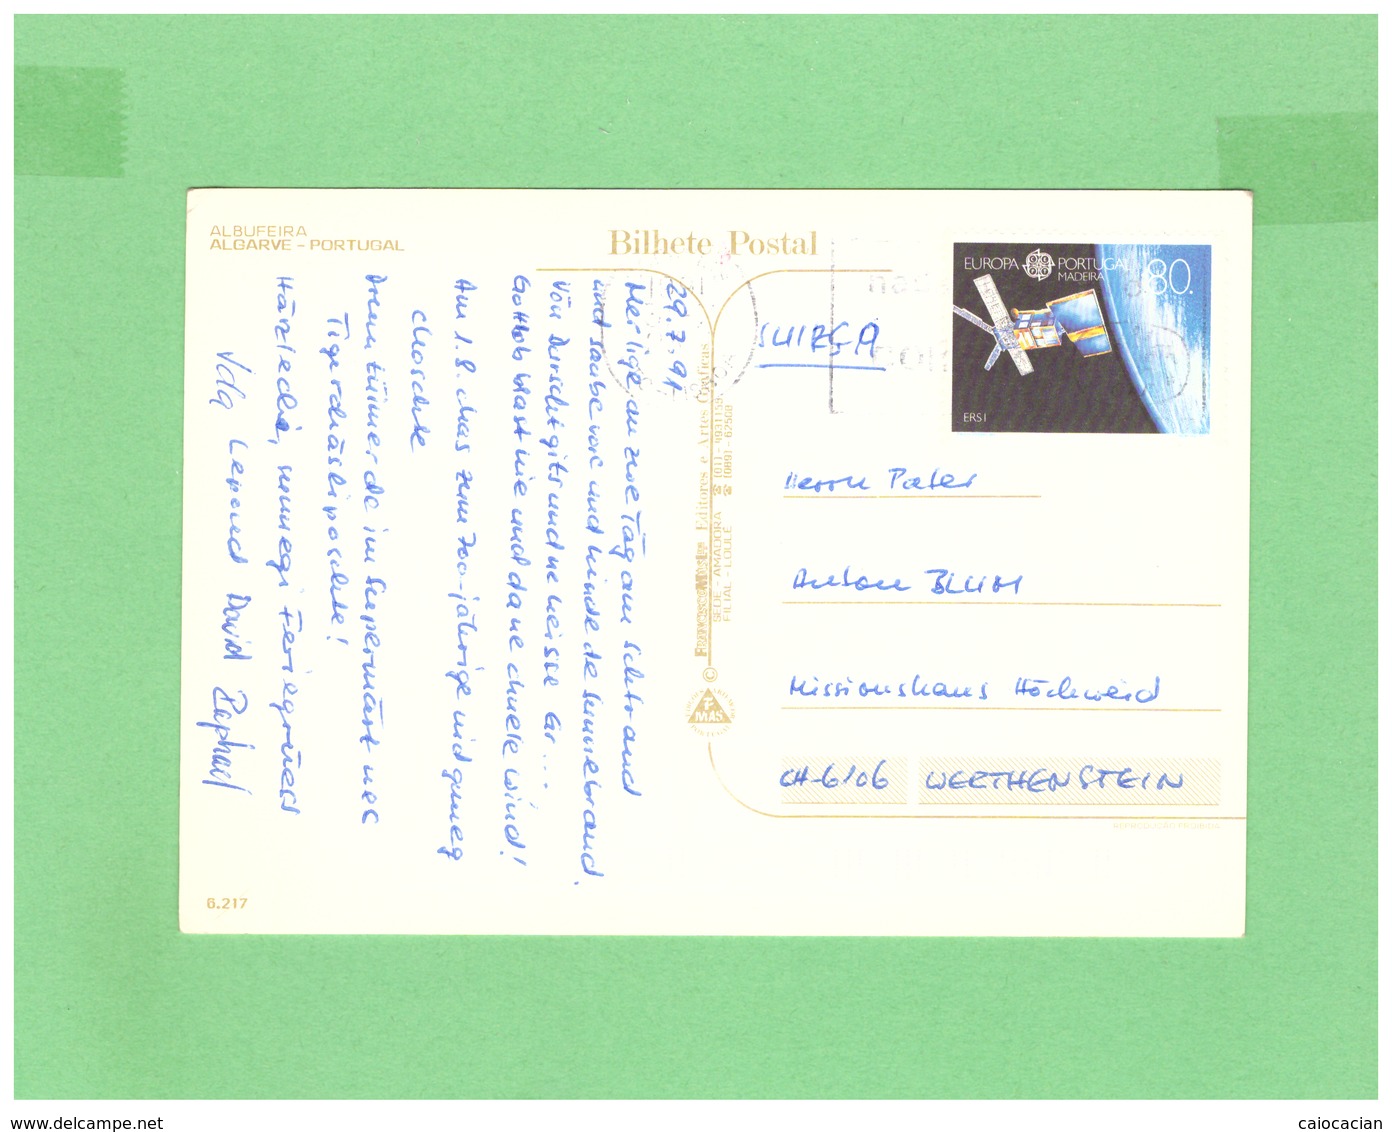 ALBUFEIRA
ALGARVE - PORTUGAL
Bilhete Postal
EUROPA PORTUGAL
MADEIRA
80.
ERS I
29.7.91
Mer lige au zwe Tag am Schtrand
und habe vor und hinde de Sunnebrand.
Vom Durscht gits und ne heisse Gr...
Gottlob blast nie und da ne chuele Wind!
Am 1.8. chas zum 700-jährige nid gmeg
choschte
Drum tüemer de im Supermärt nes
Tigerchäsli poschte!
Härzlechi, sunnegi Feriegrüess
Vda Leonard David Raphael
SUIZGA
Herrn Pater
Anton BLUM
Missionshaus Höchweid
CH-6106 WERTHENSTEIN
Editores e Artes Gráficas
SEDE - AMADORA ☎ (011) - 4931159
FILIAL - LOULÉ ☎ (089) - 62508
©
MAS
PORTUGAL
REPRODUÇÃO PROIBIDA
6.217
www.delcampe.net
caiocacian